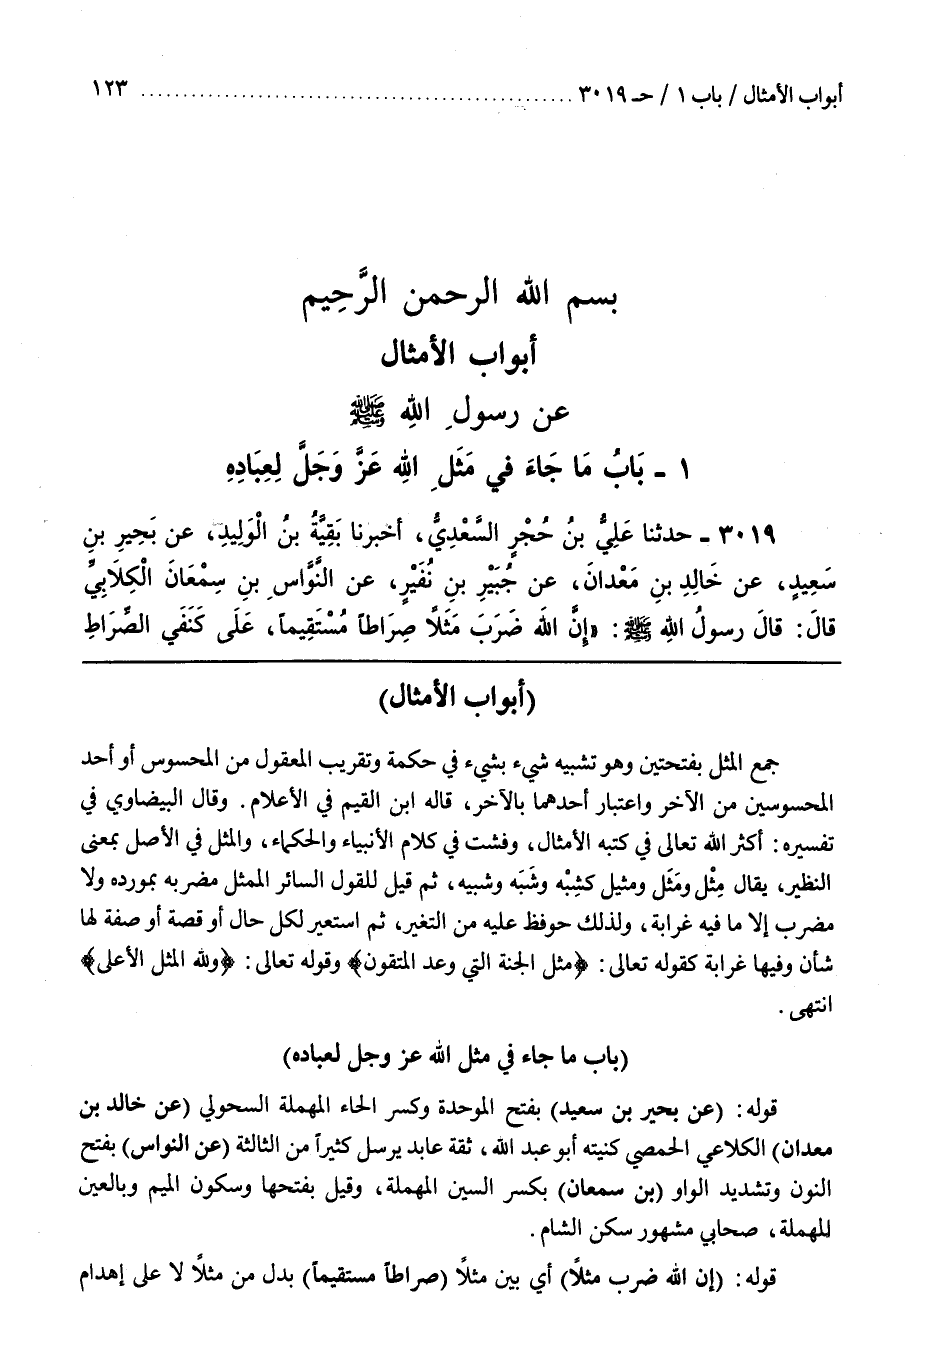 أبواب الأمثال / باب ١ / حـ ٣٠١٩ ........................................ ١٢٣
بسم الله الرحمن الرَّحِيم
أبواب الأمثال
عن رسولِ اللهِ ﷺ
١ - بَابُ مَا جَاءَ في مَثَلِ اللهِ عَزَّ وَجَلَّ لِعِبَادِهِ
٣٠١٩ - حدثنا عَلِيُّ بنُ حُجْرٍ السَّعْدِيُّ، أخبرنا بَقِيَّةُ بنُ الْوَلِيدِ، عن بَحِيرِ بنِ
سَعِيدٍ، عن خَالِدِ بنِ مَعْدانَ، عن جُبَيْرِ بنِ نُفَيْرٍ، عن النَّوَّاسِ بنِ سِمْعَانَ الْكِلَابِيِّ
قالَ: قالَ رسولُ اللهِ ﷺ: «إِنَّ الله ضَرَبَ مَثَلًا صِرَاطاً مُسْتَقِيماً، عَلَى كَنَفَي الصِّرَاطِ
(أبواب الأمثال)
جمع المثل بفتحتين وهو تشبيه شيء بشيء في حكمة وتقريب المعقول من المحسوس أو أحد
المحسوسين من الآخر واعتبار أحدهما بالآخر، قاله ابن القيم في الأعلام. وقال البيضاوي في
تفسيره: أكثر الله تعالى في كتبه الأمثال، وفشت في كلام الأنبياء والحكماء، والمثل في الأصل بمعنى
النظير، يقال مِثْل ومَثَل ومثيل كشِبْه وشَبَه وشبيه، ثم قيل للقول السائر الممثل مضربه بمورده ولا
مضرب إلا ما فيه غرابة، ولذلك حوفظ عليه من التغير، ثم استعير لكل حال أو قصة أو صفة لها
شأن وفيها غرابة كقوله تعالى: ﴿مثل الجنة التي وعد المتقون﴾ وقوله تعالى: ﴿ولله المثل الأعلى﴾
انتهى.
(باب ما جاء في مثل الله عز وجل لعباده)
قوله: (عن بحير بن سعيد) بفتح الموحدة وكسر الحاء المهملة السحولي (عن خالد بن
معدان) الكلاعي الحمصي كنيته أبو عبد الله، ثقة عابد يرسل كثيراً من الثالثة (عن النواس) بفتح
النون وتشديد الواو (بن سمعان) بكسر السين المهملة، وقيل بفتحها وسكون الميم وبالعين
للمهملة، صحابي مشهور سكن الشام.
قوله: (إن الله ضرب مثلًا) أي بين مثلًا (صراطاً مستقيماً) بدل من مثلًا لا على إهدام